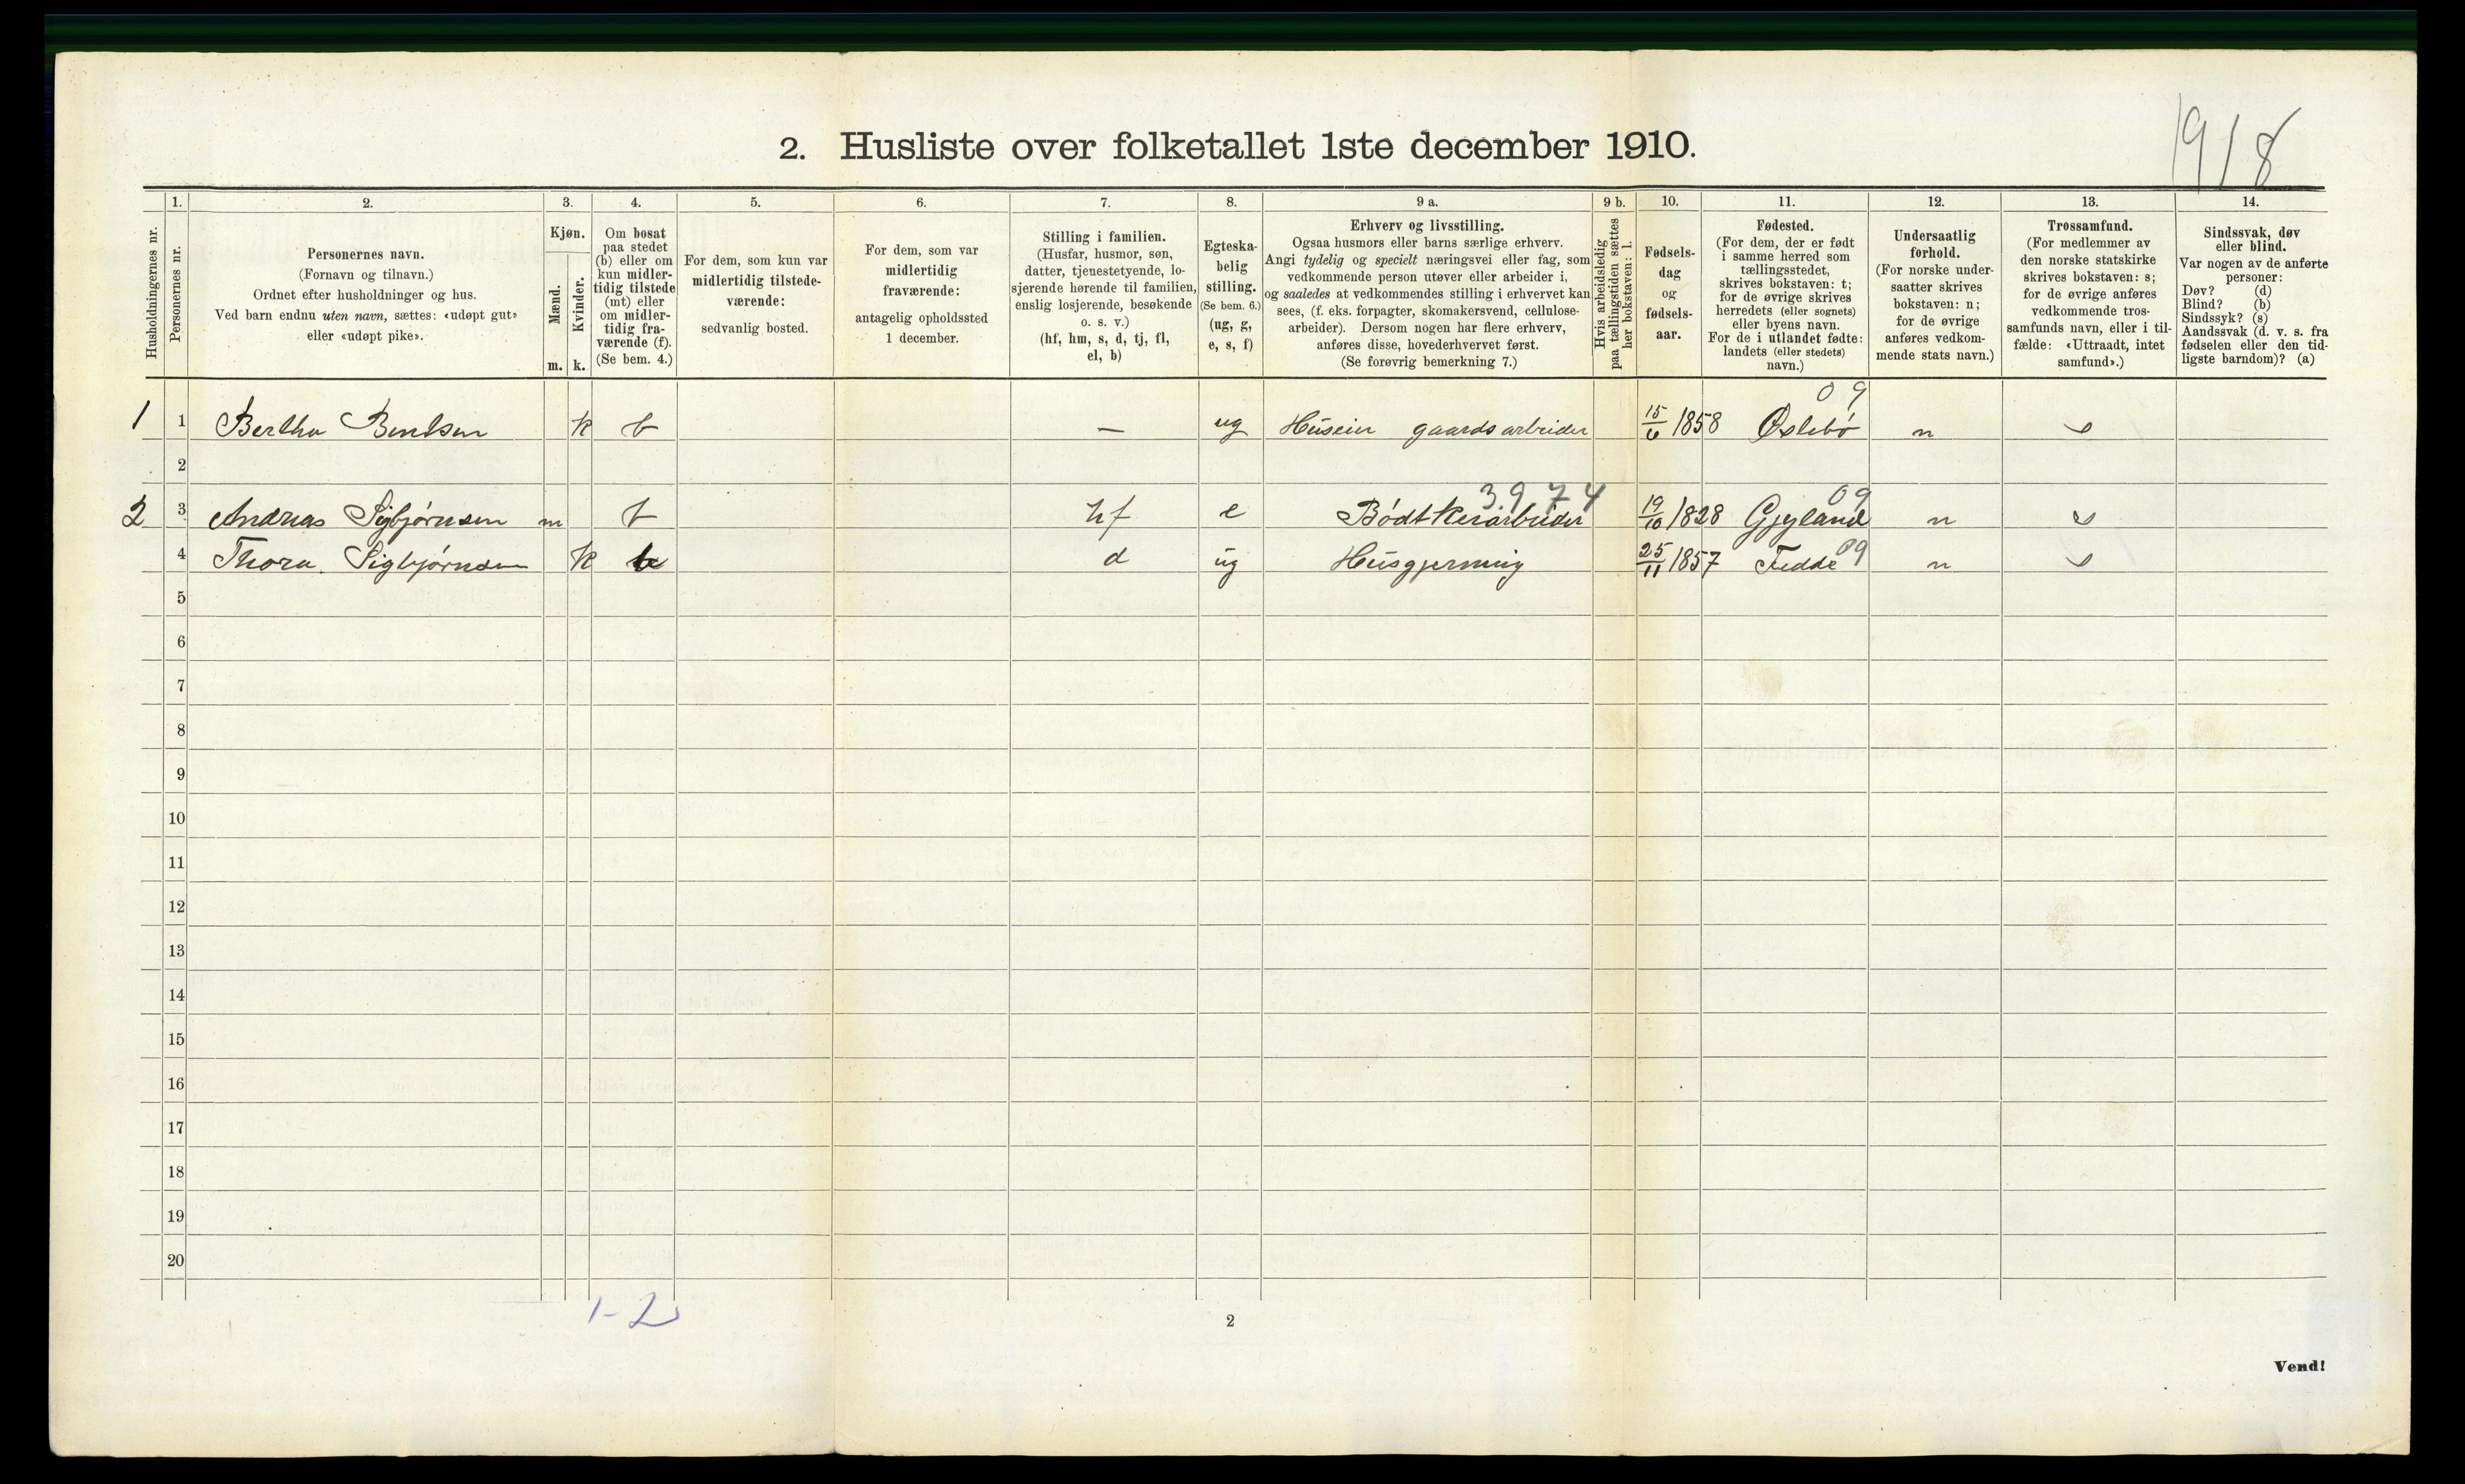 1918
2. Husliste over folketallet 1ste december 1910.
1. 2. 3. 4. 5. 6. 7. 8. 9 a. 9 b. 10. 11. 12. 13. 14.
Husholdningernes nr.
Personernes nr.
Personernes navn.
(Fornavn og tilnavn.)
Ordnet efter husholdninger og hus.
Ved barn endnu uten navn, sættes: «udøpt gut»
eller «udøpt pike».
Kjøn.
Mænd.
Kvinder.
m. k.
Om bosat
paa stedet
(b) eller om
kun midler-
tidig tilstede
(mt) eller
om midler-
tidig fra-
værende (f).
(Se bem. 4.)
For dem, som kun var
midlertidig tilstede-
værende:
sedvanlig bosted.
For dem, som var
midlertidig
fraværende:
antagelig opholdssted
1 december.
Stilling i familien.
(Husfar, husmor, søn,
datter, tjenestetyende, lo-
sjerende hørende til familien,
enslig losjerende, besøkende
o. s. v.)
(hf, hm, s, d, tj, fl,
el, b)
Egteska-
belig
stilling.
(Se bem. 6.)
(ug, g,
e, s, f)
Erhverv og livsstilling.
Ogsaa husmors eller barns særlige erhverv.
Angi tydelig og specielt næringsvei eller fag, som
vedkommende person utøver eller arbeider i,
og saaledes at vedkommendes stilling i erhvervet kan
sees, (f. eks. forpagter, skomakersvend, cellulose-
arbeider). Dersom nogen har flere erhverv,
anføres disse, hovederhvervet først.
(Se forøvrig bemerkning 7.)
Hvis arbeidsledig
paa tællingstiden sættes
her bokstaven: l.
Fødsels-
dag
og
fødsels-
aar.
Fødested.
(For dem, der er født
i samme herred som
tællingsstedet,
skrives bokstaven: t;
for de øvrige skrives
herredets (eller sognets)
eller byens navn.
For de i utlandet fødte:
landets (eller stedets)
navn.)
Undersaatlig
forhold.
(For norske under-
saatter skrives
bokstaven: n;
for de øvrige
anføres vedkom-
mende stats navn.)
Trossamfund.
(For medlemmer av
den norske statskirke
skrives bokstaven: s;
for de øvrige anføres
vedkommende tros-
samfunds navn, eller i til-
fælde: «Uttraadt, intet
samfund».)
Sindssvak, døv
eller blind.
Var nogen av de anførte
personer:
Døv? (d)
Blind? (b)
Sindssyk? (s)
Aandssvak (d. v. s. fra
fødselen eller den tid-
ligste barndom)? (a)
09
1 1 Bertha Bentsen k b — ug Huseier gaardsarbeider 15/6 1858 Øslebø n s
2
3974 09
2 3 Andreas Sigbjørnsen m b hf e Bødtkerarbeider 19/10 1828 Gjyland n s
4 Thora Sigbjørnsen k b d ug Husgjerning 25/11 1857 Fedde 09 n s
5
6
7
8
9
10
11
12
13
14
15
16
17
18
19
20
1-2
2
Vend!